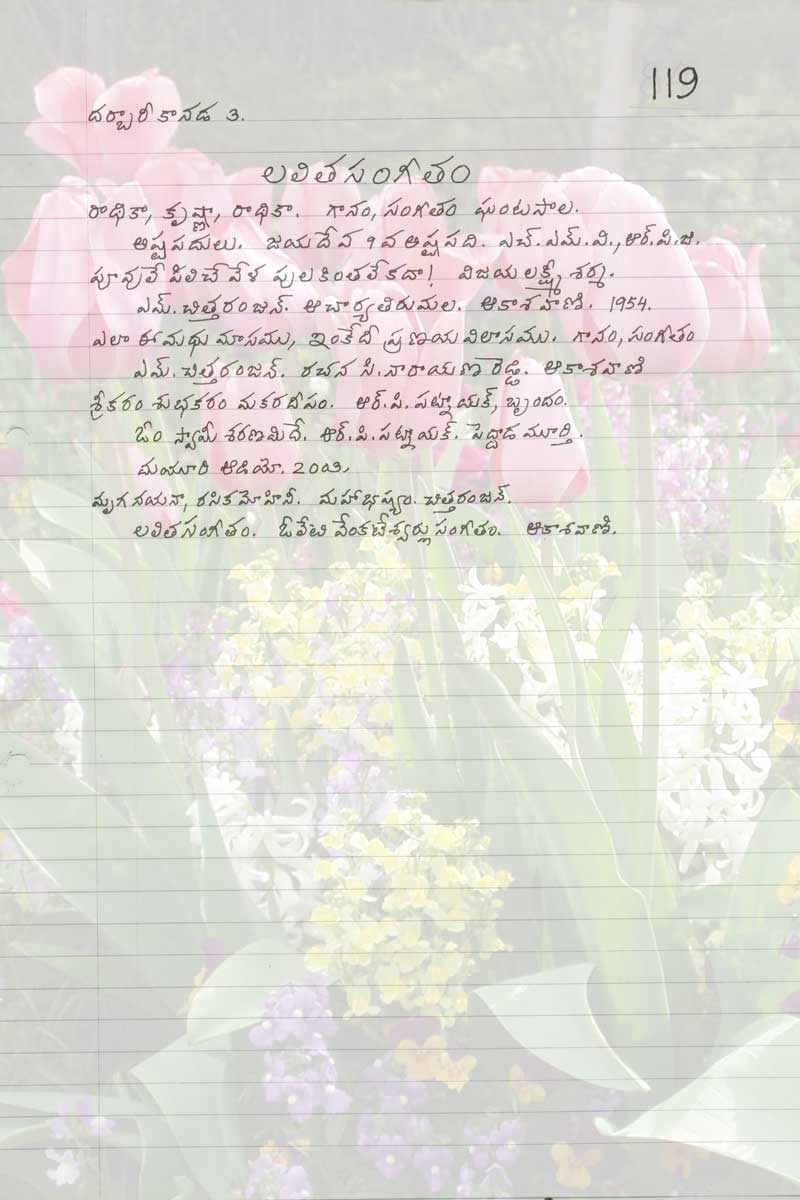 119
దర్బారీ కానడ 3.
లలిత సంగీతం
రాధికా, కృష్ణా, రాధికా. గానం, సంగీతం ఘంటసాల.
అష్టపదులు. జయదేవ 9 వ అష్టపది. ఎచ్.ఎమ్.వి., ఆర్.పి.జి.
పూవులే పిలిచే వేళ పులకింతలే కదా! విజయలక్ష్మీ శర్మ.
ఎమ్. చిత్తరంజన్. ఆచార్య తిరుమల. ఆకాశవాణి. 1954.
ఎలా ఈ మధు మాసము, ఇంకేదీ ప్రణయ విలాసము. గానం, సంగీతం
ఎమ్. చిత్తరంజన్. రచన సి. నారాయణ రెడ్డి. ఆకాశవాణి
శ్రీకరం శుభకరం మకరదీపం. ఆర్.పి. పట్నాయక్, బృందం.
ఓం స్వామీ శరణమిదే. ఆర్.పి. పట్నాయక్. పెద్దాడ మూర్తి.
మయూరి ఆడియో. 2003.
మృగనయనా, రసికమోహినీ. మహాభాష్యం. చిత్తరంజన్.
లలిత సంగీతం. ఓలేటి వేంకటేశ్వర్లు సంగీతం. ఆకాశవాణి.